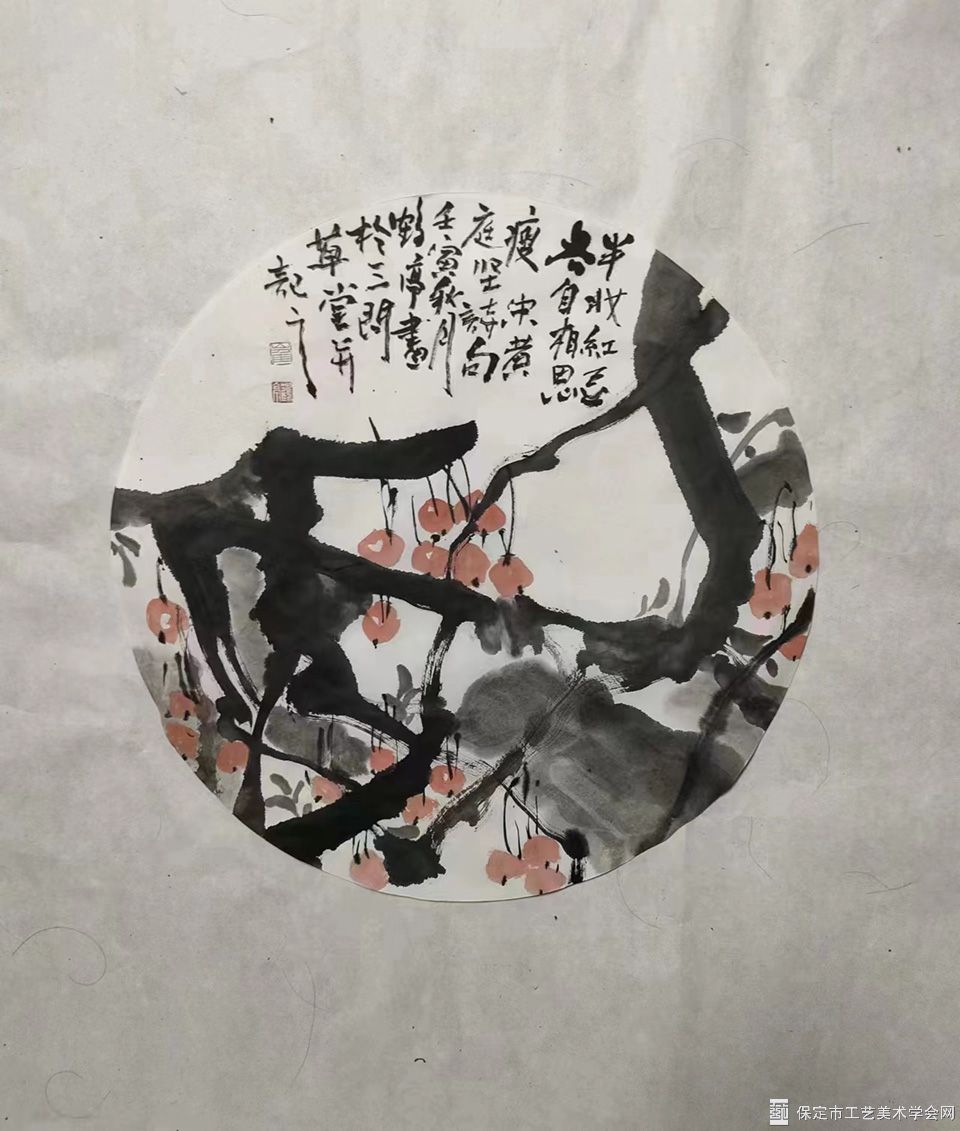 半妆紅豆
各自相思
瘦 宋黄
庭坚詩句
壬寅秋月
鶴亭畫
於三間
草堂并
記之
保定市工艺美术学会网